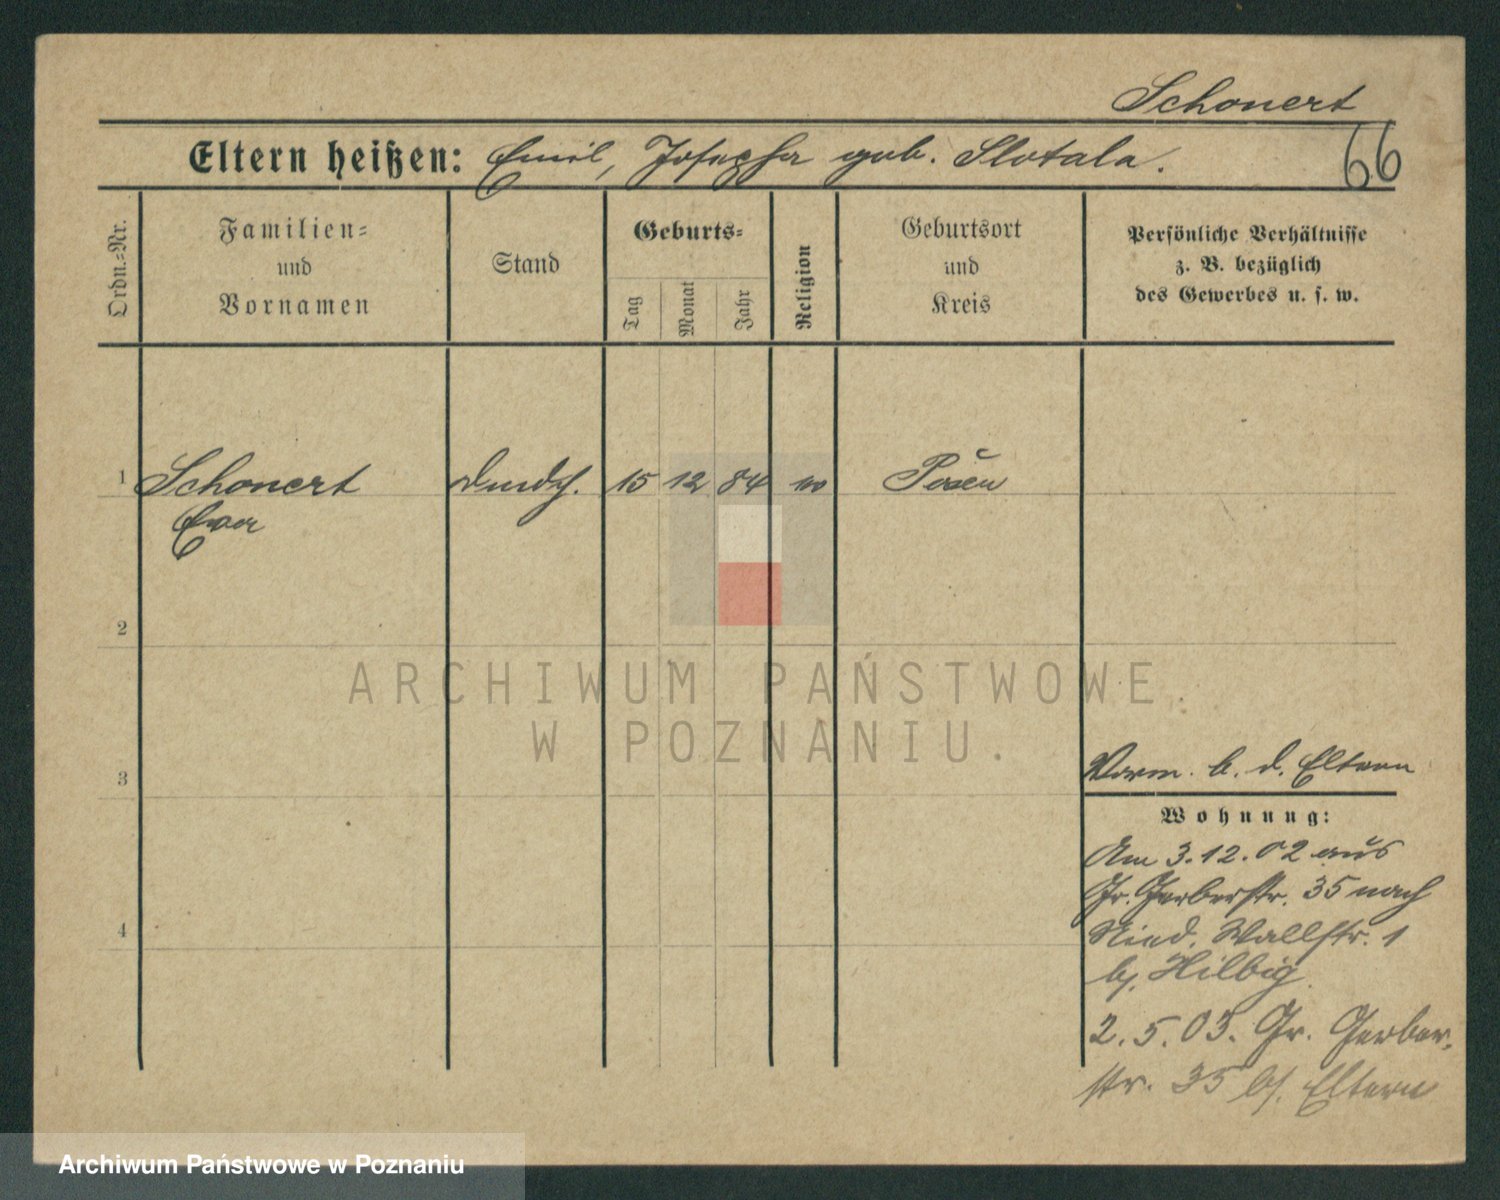 Schonert
Eltern heißen: Emil, Josepha geb. Slotala.
66
Ordn.=Nr.
Familien=
und
Vornamen
Stand
Geburts=
Tag
Monat
Jahr
Religion
Geburtsort
und
Kreis
Persönliche Verhältnisse
z. B. bezüglich
des Gewerbes u. s. w.
1 Schonert 15 12 84 Posen
Eva
2
ARCHIWUM PAŃSTWOWE
W POZNANIU.
3
Vorm. b. d. Eltern
Wohnung:
Am 3.12.02 aus
Gr. Gerberstr. 35 nach
4
Nied. Wallstr. 1
bj. Hilbig.
2.5.03. Gr. Gerber-
str. 35 bj. Eltern
Archiwum Państwowe w Poznaniu